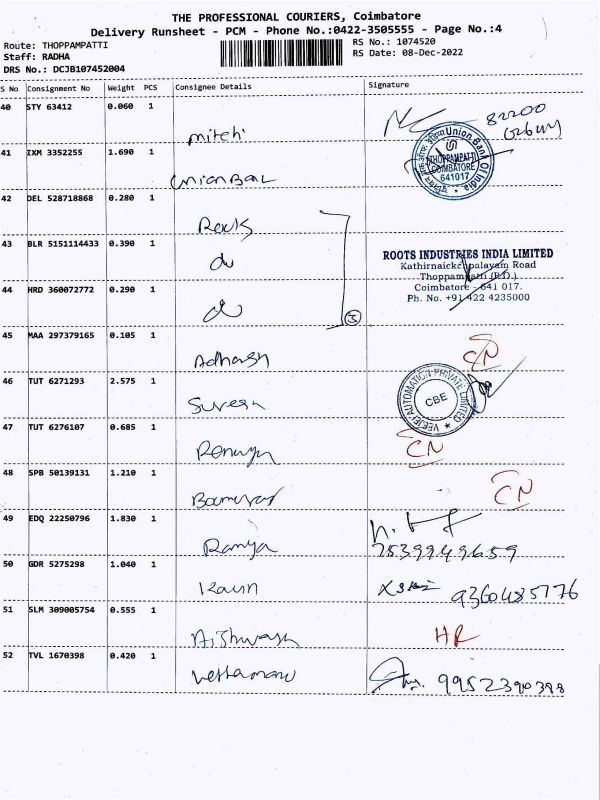 THE PROFESSIONAL COURIERS, Coimbatore
Delivery Runsheet - PCM - Phone No.:0422-3505555 - Page No.:4
Route: THOPPAMPATTI
Staff: RADHA
DRS No.: DCJB107452004
RS No.: 1074520
RS Date: 08-Dec-2022
S No Consignment No Weight PCS Consignee Details Signature
40 STY 63412 0.060 1
mitch
82200
Union Bank Of India
THOPPAMPATTI
COIMBATORE
641017
41 IXM 3352255 1.690 1
union Bank
42 DEL 528718868 0.280 1
Roots
43 BLR 5151114433 0.390 1
do
ROOTS INDUSTRIES INDIA LIMITED
Kathirnaickenpalayam Road
Thoppampatti (P.O.)
Coimbatore - 641 017.
Ph. No. +91 422 4235000
44 HRD 360072772 0.290 1
do
3
45 MAA 297379165 0.105 1
Adharsh
CN
46 TUT 6271293 2.575 1
Suresh
VEEJEI AUTOMATION PRIVATE LIMITED
CBE
47 TUT 6276107 0.685 1
Renuga
CN
48 SPB 50139131 1.210 1
CN
49 EDQ 22250796 1.830 1
Ramya
7539949659
50 GDR 5275298 1.040 1
Kavin
9360485776
51 SLM 309005754 0.555 1
Aishwarya
HR
52 TVL 1670398 0.420 1
9952390398